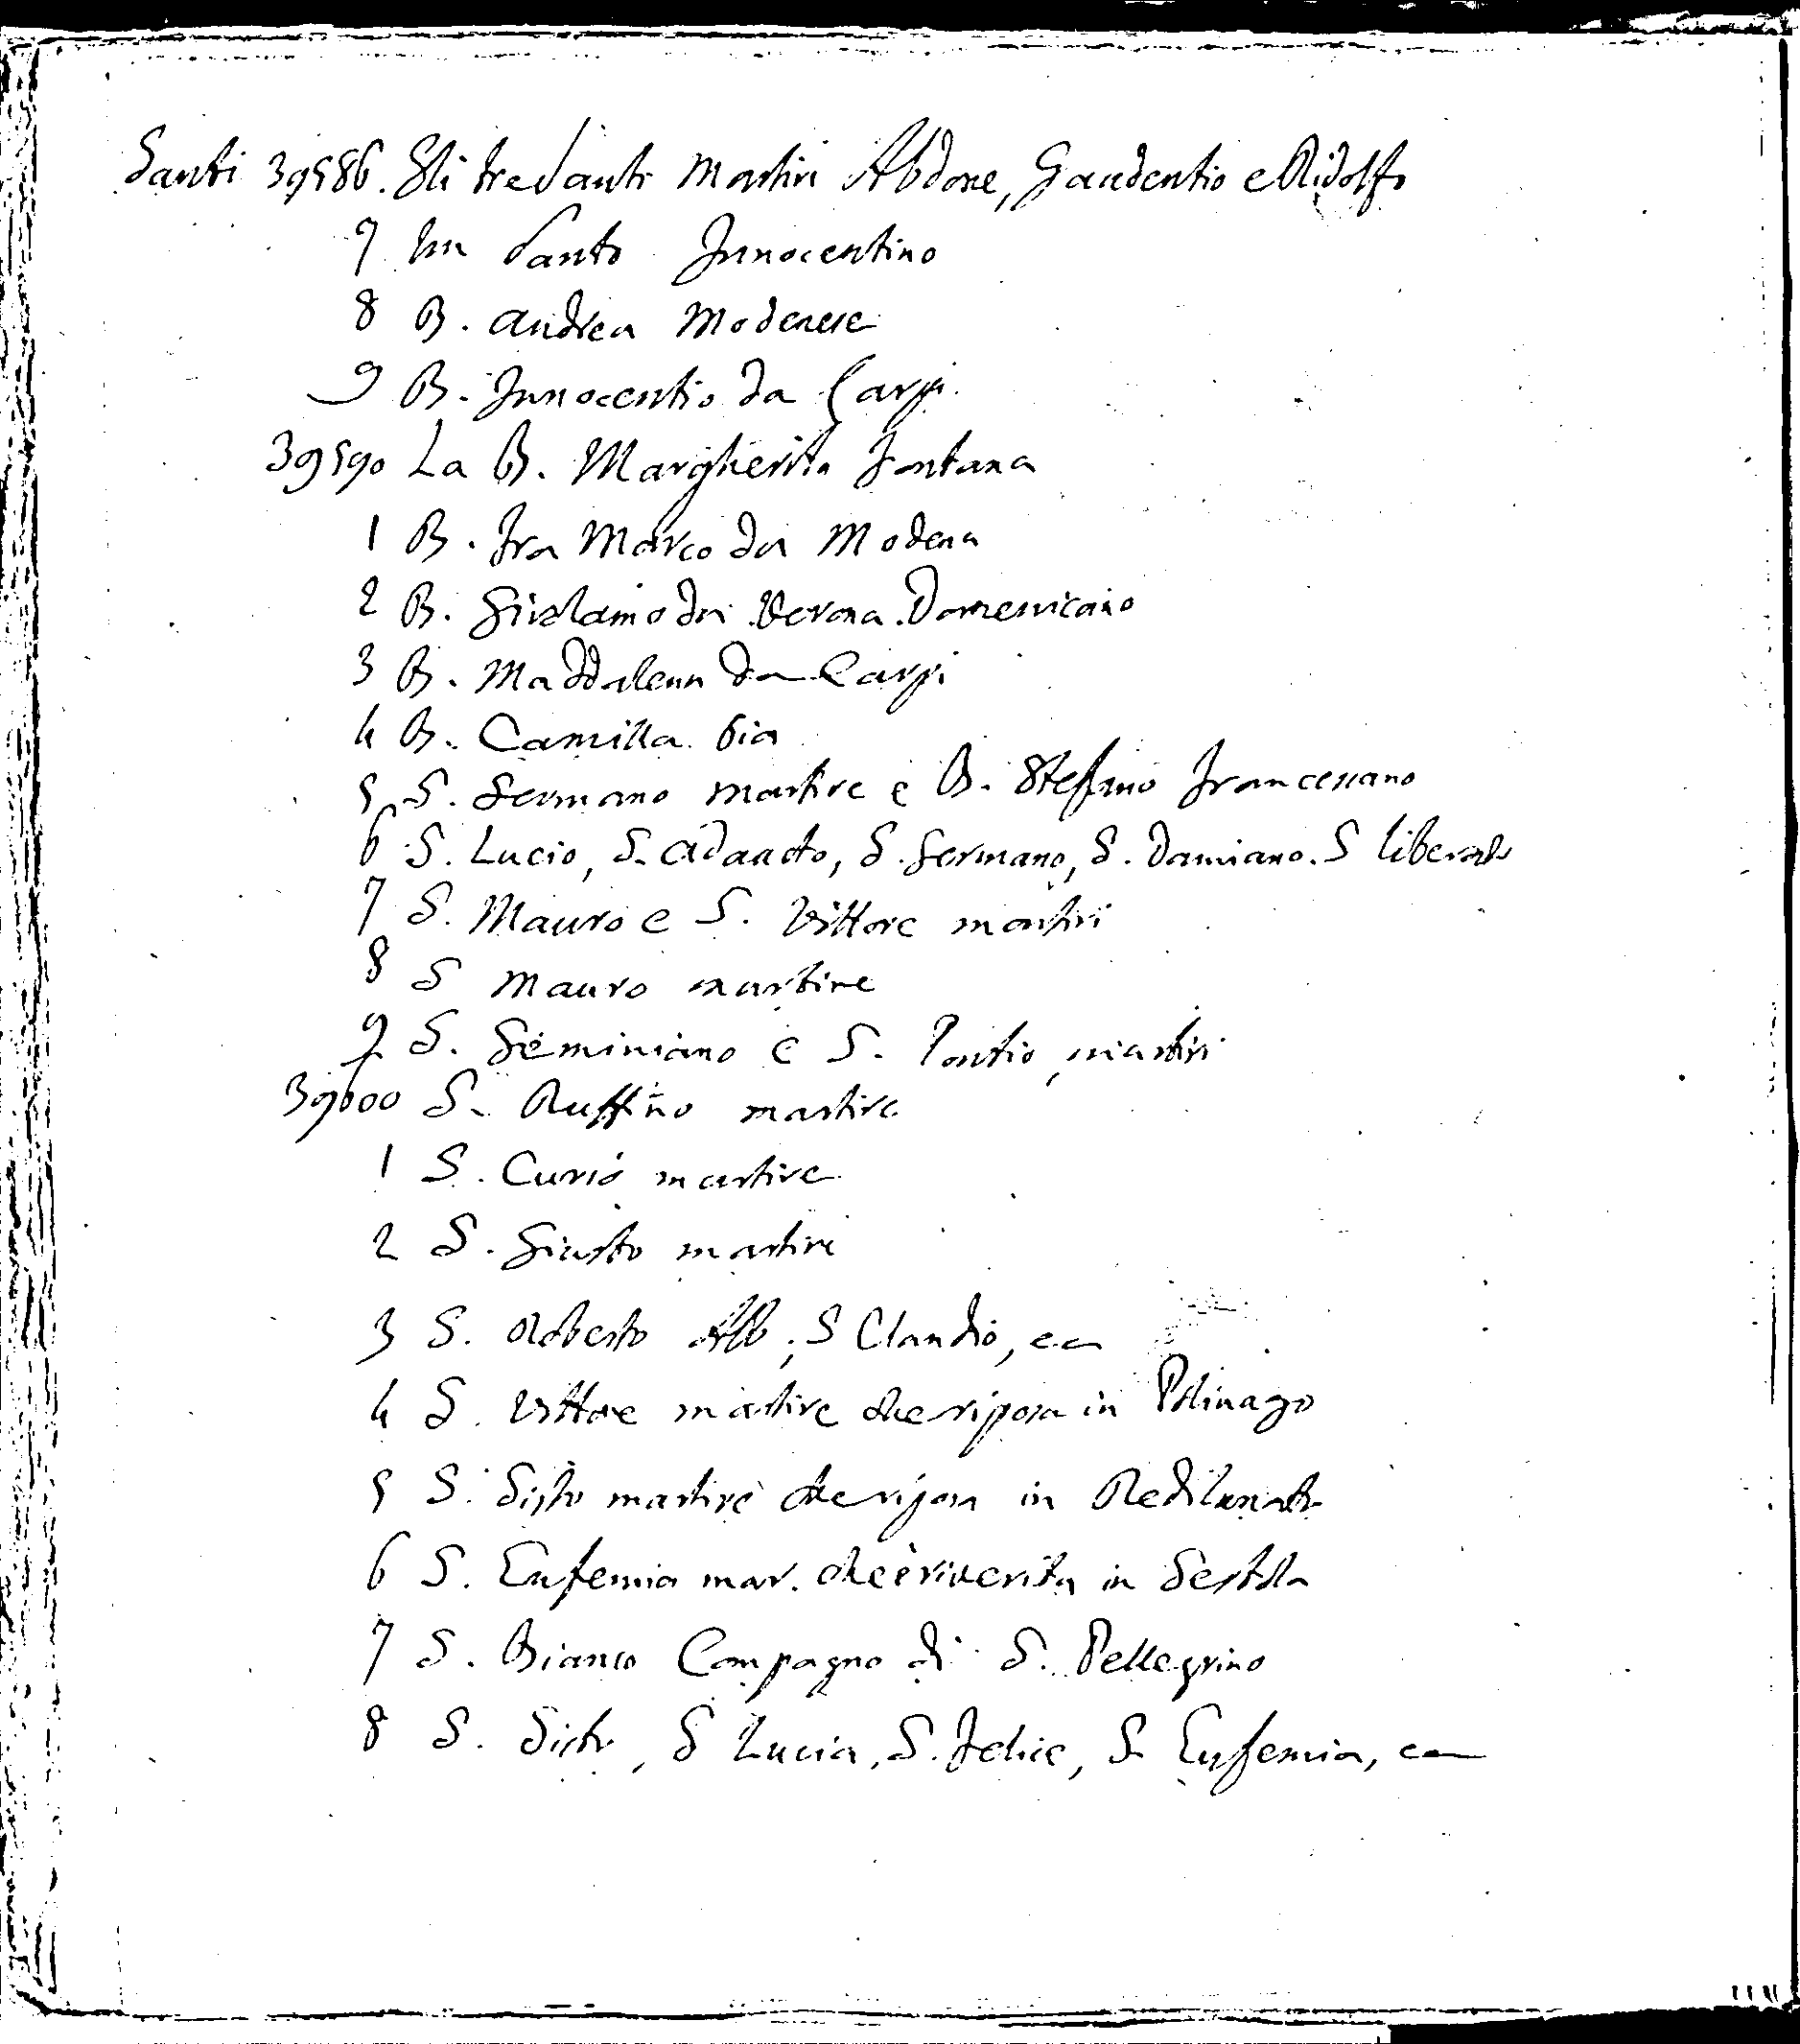 Santi 39586. Gli tre Santi Martiri Abdone, Gaudentio e Ridolfo
7 Un Santo Innocentino
8 B. Andrea Modenese
9 B. Innocentio da Carpi.
39590 La B. Margherita Fontana
1 B. Fra Marco da Modena
2 B. Girolamo da Verona Domenicano
3 B. Maddalena da Carpi
4 B. Camilla Pia
5 S. Germano martire e B. Stefano Francescano
6 S. Lucio, S. Adaucto, S. Germano, S. Damiano. S Liberato
7 S. Mauro e S. Vittore martiri
8 S Mauro martire
9 S. Geminiano e S. Pontio martiri
39600 S. Ruffino martire
1 S. Curio martire
2 S. Giusto martire
3 S. Roberto Abb, S Claudio, ec
4 S. Vittore martire che riposa in Polinago
5 S. Sisto martire che riposa in
6 S. Eufemia mar. che è riverita in Sestola
7 S. Bianco Compagno di S. Pellegrino
8 S. Sisto, S Lucia, S. Felice, S. Eufemia, ec